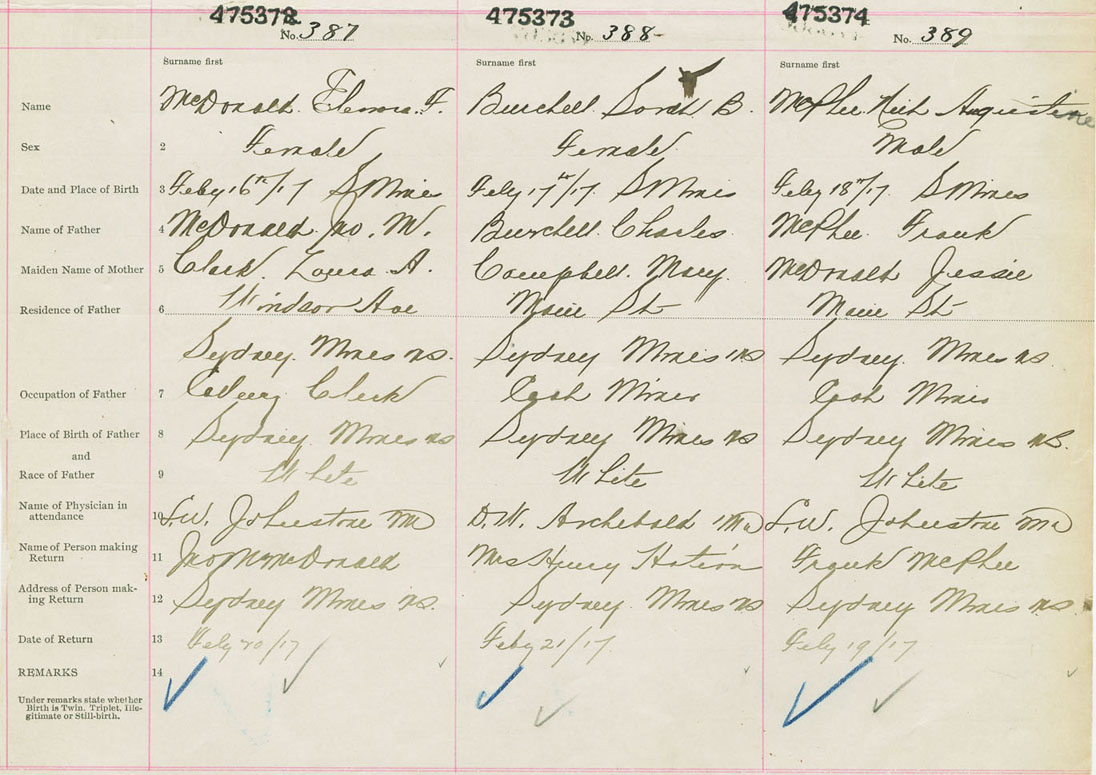 475372 475373 475374
No. 387 No. 388 No. 389
Surname first Surname first Surname first
Name McDonald. F. Burchell. Sarah B. McPhee Augustine
Sex 2 Female Female Male
Date and Place of Birth 3 Feby 16th/17 S Mines Feby 17th/17. S Mines Feby 18th/17 S Mines
Name of Father 4 McDonald Jno. W. Burchell. Charles McPhee Frank
Maiden Name of Mother 5 Clark. Louisa A. Campbell. Mary. McDonald Jessie
Residence of Father 6 Windsor Ave Main St Main St
Sydney Mines ns. Sydney Mines ns Sydney Mines ns.
Occupation of Father 7 Colliery Clerk Coal Miner Coal Miner
Place of Birth of Father 8 Sydney Mines ns Sydney Mines ns Sydney Mines ns.
and
Race of Father 9 White White White
Name of Physician in
attendance 10 L.W. Johnstone MD D.W. Archibald MD L.W. Johnstone MD
Name of Person making
Return 11 Jno W McDonald Mrs Henry Frank McPhee
Address of Person mak-
ing Return 12 Sydney Mines ns. Sydney Mines ns Sydney Mines ns.
Date of Return 13 Feby 20/17 Feby 21/17. Feby 19/17.
REMARKS 14
Under remarks state whether
Birth is Twin, Triplet, Ille-
gitimate or Still-birth.